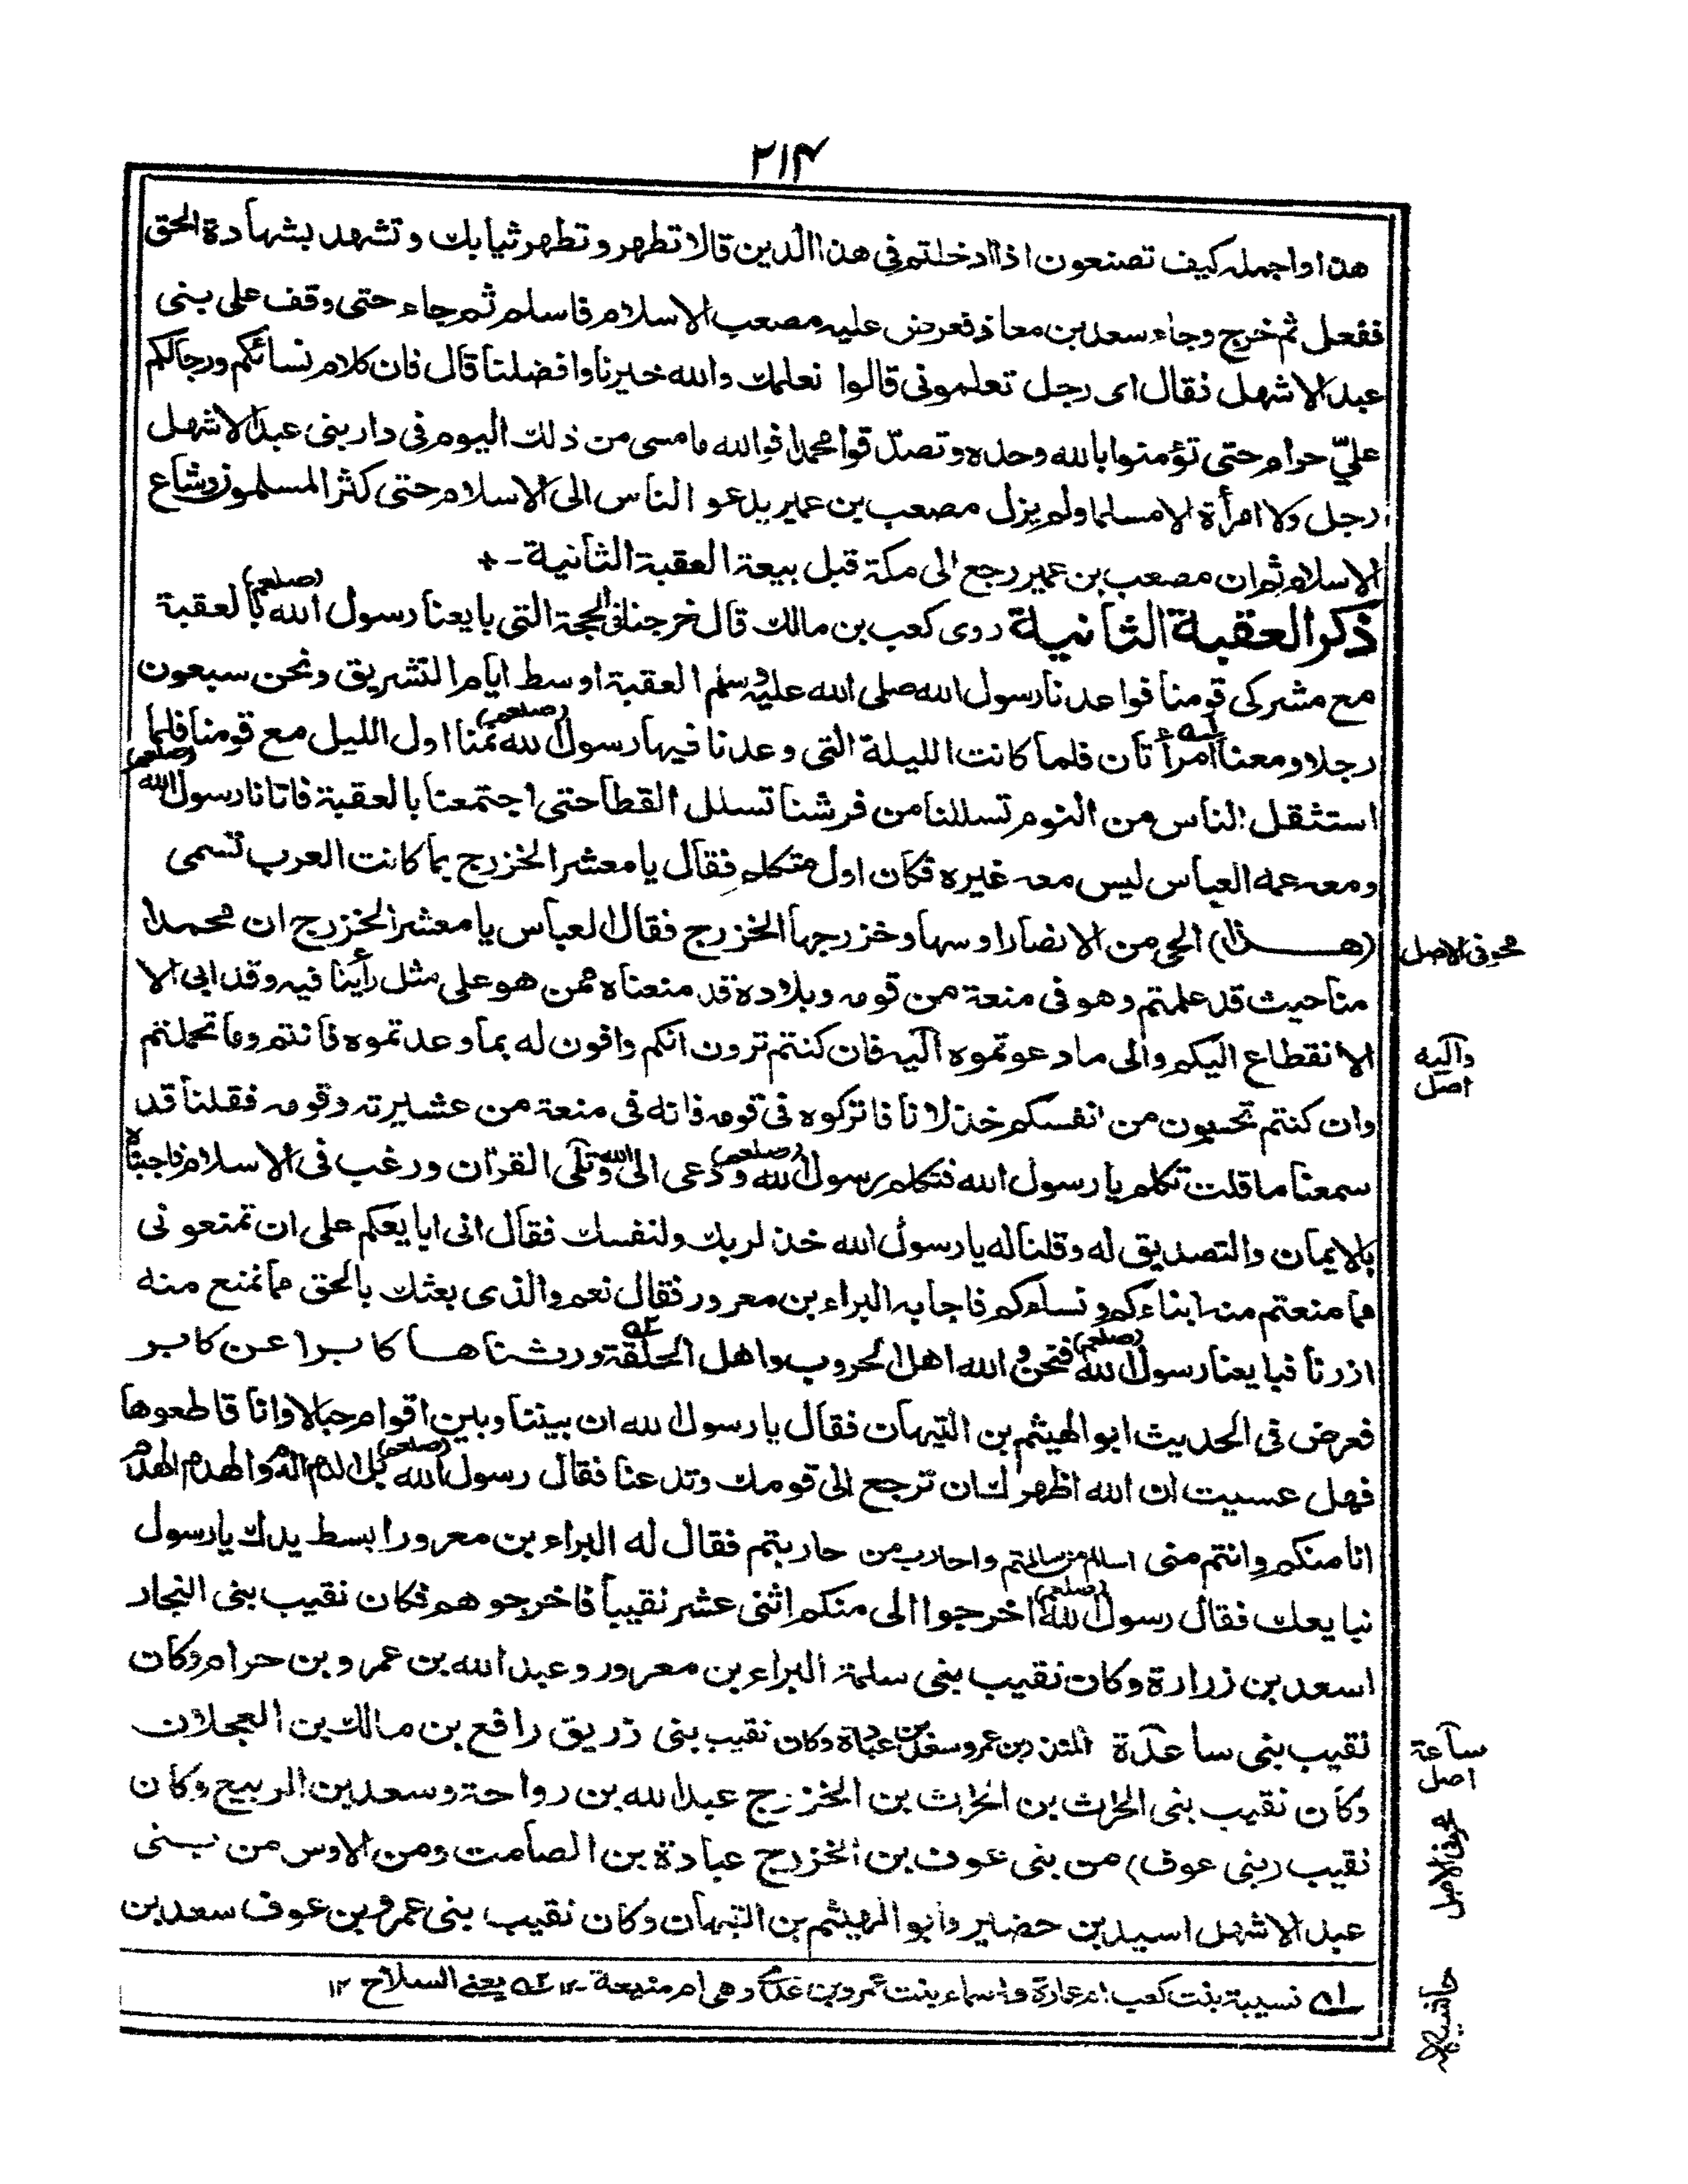 ٢١٤
هذا واجمله كيف تصنعون اذا ادخلتم فى هذا الدين قالا تطهر و تطهر ثيابك و تشهد بشهادة الحق
ففعل ثم خرج وجاء سعد بن معاذ فعرض عليه مصعب الاسلام فاسلم ثم جاء حتى وقف على بنى
عبد الاشهل فقال اى رجل تعلمونى قالوا نعلمك والله خيرنا وافضلنا قال فان كلام نسائكم ورجالكم
علىّ حرام حتى تؤمنوا بالله وحده وتصدّقوا محمدا فوالله ما مسى من ذلك اليوم فى دار بنى عبد الاشهل
رجل ولا امرأة الا مسلما ولم يزل مصعب بن عمير يدعو الناس الى الاسلام حتى كثر المسلمون وشاع
الاسلام ثم ان مصعب بن عمير رجع الى مكة قبل بيعة العقبة الثانية -+
ذكر العقبة الثانية روى كعب بن مالك قال خرجنا فى الحجة التى بايعنا رسول الله (صلعم) بالعقبة
مع مشركى قومنا فواعدنا رسول الله صلى الله عليه وسلم العقبة اوسط ايام التشريق ونحن سبعون
رجلا ومعنا امرأتان فلما كانت الليلة التى وعدنا فيها رسول الله (صلعم) نمنا اول الليل مع قومنا فلما
استثقل الناس من النوم تسللنا من فرشنا تسلل القطا حتى اجتمعنا بالعقبة فاتانا رسول الله (صلعم)
ومعه عمه العباس ليس معه غيره فكان اول متكلم فقال يا معشر الخزرج بما كانت العرب تسمى
(هذا) الحى من الانصار اوسها وخزرجها الخزرج فقال العباس يا معشر الخزرج ان محمدا
محو فى الاصل
منا حيث قد علمتم وهو فى منعة من قومه وبلاده قد منعناه ممن هو على مثل رأينا فيه وقد ابى الا
الانقطاع اليكم والى ما دعوتموه اليه فان كنتم ترون انكم وافون له بما وعدتموه فانتم وما تحملتم
واليه اصل
وان كنتم تحسبون من انفسكم خذلانا فاتركوه فى قومه فانه فى منعة من عشيرته وقومه فقلنا قد
سمعنا ما قلت تكلم يا رسول الله فتكلم رسول الله (صلعم) ودعى الى الله وتلى القرآن ورغب فى الاسلام فاجبناه
بالايمان والتصديق له وقلنا له يا رسول الله خذ لربك ولنفسك فقال انى ابايعكم على ان تمنعونى
مما منعتم منه ابناءكم ونساءكم فاجابه البراء بن معرور فقال نعم والذى بعثك بالحق مما نمنع منه
ازرنا فبايعنا رسول الله (صلعم) فنحن والله اهل الحروب واهل الحلقة ورثناها كابرا عن كابر
فعرض فى الحديث ابو الهيثم بن التيهان فقال يا رسول الله ان بيننا وبين اقوام حبالا وانا قاطعوها
فهل عسيت ان الله اظهرك ان ترجع الى قومك وتدعنا فقال رسول الله (صلعم) بل الدم الدم والهدم الهدم
انا منكم وانتم منى اسالم من سالمتم واحارب من حاربتم فقال له البراء بن معرور ابسط يدك يا رسول
نبايعك فقال رسول الله (صلعم) اخرجوا الى منكم اثنى عشر نقيبا فاخرجوهم فكان نقيب بنى النجار
اسعد بن زرارة وكان نقيب بنى سلمة البراء بن معرور وعبد الله بن عمرو بن حرام وكان
نقيب بنى ساعدة المنذر بن عمرو وسعد بن عبادة وكان نقيب بنى زريق رافع بن مالك بن العجلان
ساعة اصل
وكان نقيب بنى الحرث بن الحراث بن الخزرج عبد الله بن رواحة وسعد بن الربيع وكان
نقيب (بنى عوف) من بنى عوف بن الخزرج عبادة بن الصامت ومن الاوس من بنى
محو فى الاصل
عبد الاشهل اسيد بن حضير وابو الهيثم بن التيهان وكان نقيب بنى عمرو بن عوف سعد بن
١ه نسيبة بنت كعب ام عمارة واسماء بنت عمرو بن عدى وهى ام منيعة -١٢ ٢ه يعنى السلاح ١٢
حاشيه